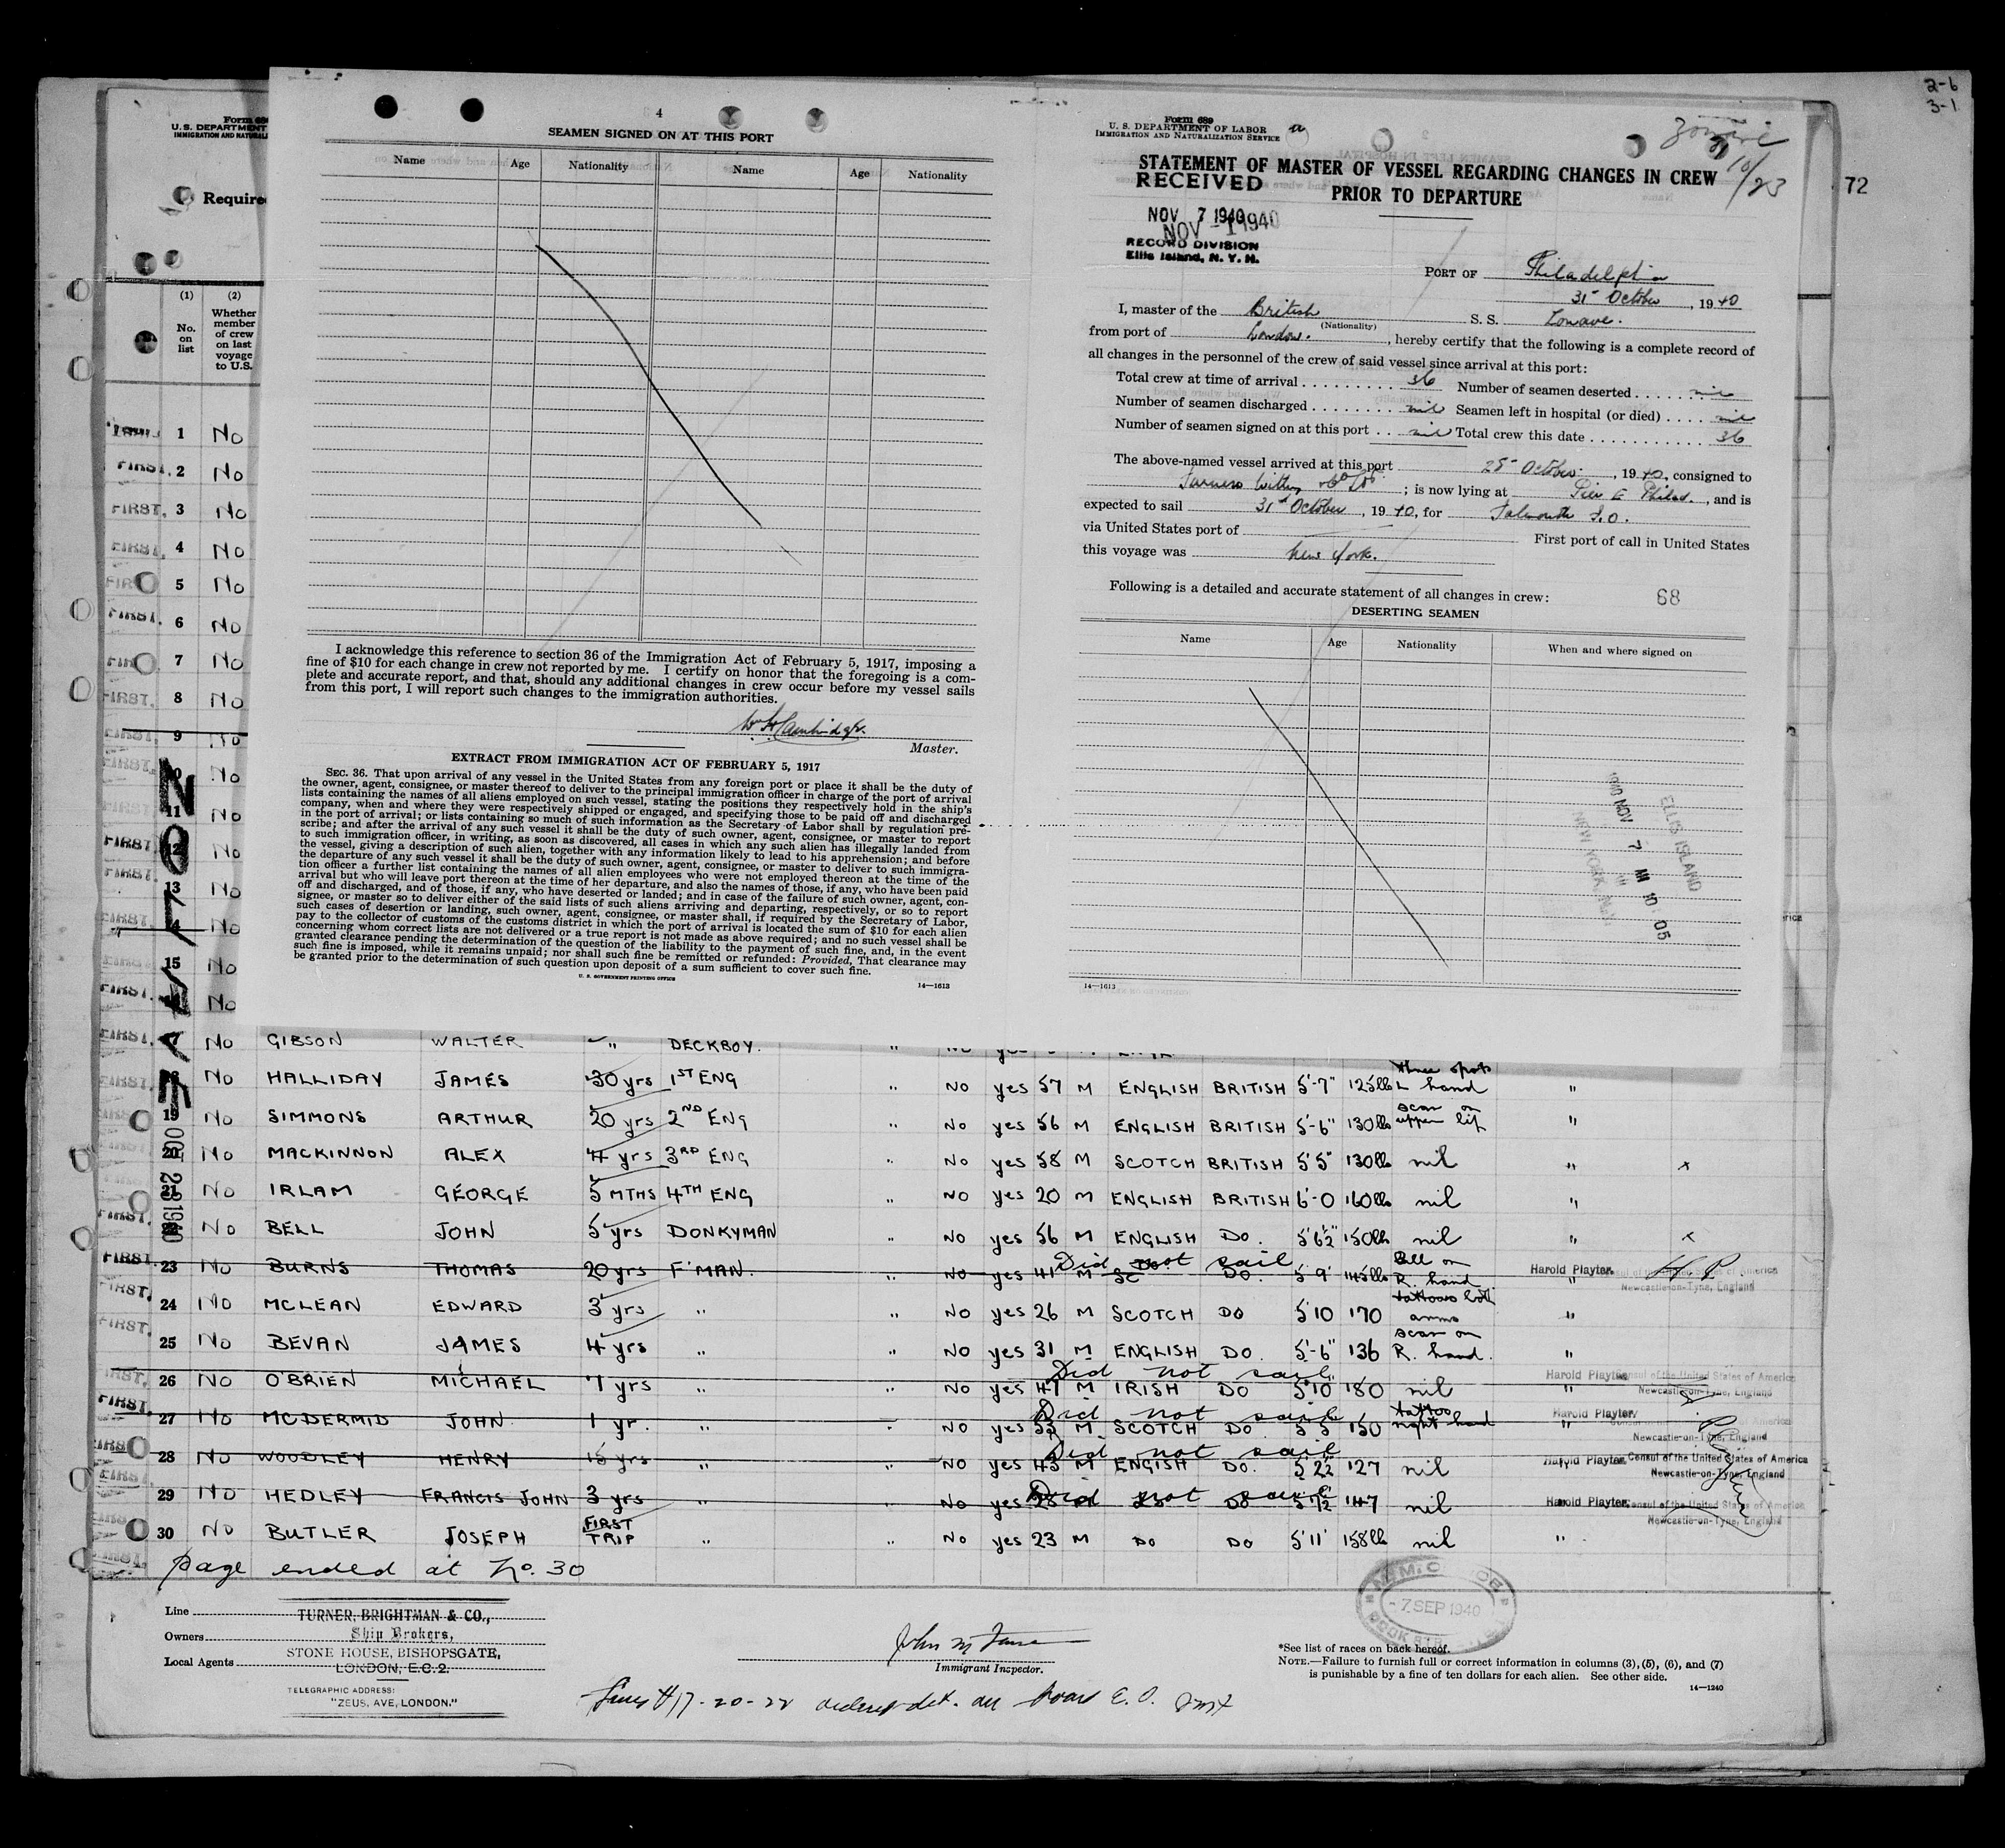 2-6
3-1
72
Form 68
U. S. DEPARTMENT
IMMIGRATION AND NATURALI
Require
(1)
No. on list
(2)
Whether member of crew on last voyage to U.S.
1 No
FIRST. 2 No
FIRST. 3 No
FIRST. 4 No
FIR 5 No
FIRST. 6 No
FIR 7 No
FIRST. 8 No
FIRST. 9 No
FIRST. 10 No
FIRST. 11 No
FIRST. 12 No
FIRST. 13 No
FIRST. 14 No
FIRST. 15 No
FIRST. No
OCT 23 1940
4
SEAMEN SIGNED ON AT THIS PORT
Name Age Nationality Name Age Nationality
I acknowledge this reference to section 36 of the Immigration Act of February 5, 1917, imposing a
fine of $10 for each change in crew not reported by me. I certify on honor that the foregoing is a com-
plete and accurate report, and that, should any additional changes in crew occur before my vessel sails
from this port, I will report such changes to the immigration authorities.
Master.
EXTRACT FROM IMMIGRATION ACT OF FEBRUARY 5, 1917
SEC. 36. That upon arrival of any vessel in the United States from any foreign port or place it shall be the duty of
the owner, agent, consignee, or master thereof to deliver to the principal immigration officer in charge of the port of arrival
lists containing the names of all aliens employed on such vessel, stating the positions they respectively hold in the ship's
company, when and where they were respectively shipped or engaged, and specifying those to be paid off and discharged
in the port of arrival; or lists containing so much of such information as the Secretary of Labor shall by regulation pre-
scribe; and after the arrival of any such vessel it shall be the duty of such owner, agent, consignee, or master to report
to such immigration officer, in writing, as soon as discovered, all cases in which any such alien has illegally landed from
the vessel, giving a description of such alien, together with any information likely to lead to his apprehension; and before
the departure of any such vessel it shall be the duty of such owner, agent, consignee, or master to deliver to such immigra-
tion officer a further list containing the names of all alien employees who were not employed thereon at the time of the
arrival but who will leave port thereon at the time of her departure, and also the names of those, if any, who have been paid
off and discharged, and of those, if any, who have deserted or landed; and in case of the failure of such owner, agent, con-
signee, or master so to deliver either of the said lists of such aliens arriving and departing, respectively, or so to report
such cases of desertion or landing, such owner, agent, consignee, or master shall, if required by the Secretary of Labor,
pay to the collector of customs of the customs district in which the port of arrival is located the sum of $10 for each alien
concerning whom correct lists are not delivered or a true report is not made as above required; and no such vessel shall be
granted clearance pending the determination of the question of the liability to the payment of such fine, and, in the event
such fine is imposed, while it remains unpaid; nor shall such fine be remitted or refunded: Provided, That clearance may
be granted prior to the determination of such question upon deposit of a sum sufficient to cover such fine.
U. S. GOVERNMENT PRINTING OFFICE
14—1613
Form 689
U. S. DEPARTMENT OF LABOR
IMMIGRATION AND NATURALIZATION SERVICE
10/23
STATEMENT OF MASTER OF VESSEL REGARDING CHANGES IN CREW
PRIOR TO DEPARTURE
RECEIVED
NOV 7 1940
NOV - 1 1940
RECORD DIVISION
Ellis Island, N. Y. H.
PORT OF Philadelphia
31st October, 1940
I, master of the British S. S. Zouave.
(Nationality)
from port of London., hereby certify that the following is a complete record of
all changes in the personnel of the crew of said vessel since arrival at this port:
Total crew at time of arrival 36 Number of seamen deserted nil
Number of seamen discharged nil Seamen left in hospital (or died) nil
Number of seamen signed on at this port nil Total crew this date 36
The above-named vessel arrived at this port 25th October, 1940, consigned to
Furness Withy & Co Ltd; is now lying at Pier E Philad., and is
expected to sail 31st October, 1940, for Falmouth F.O.
via United States port of First port of call in United States
this voyage was New York.
Following is a detailed and accurate statement of all changes in crew:
68
DESERTING SEAMEN
Name Age Nationality When and where signed on
ELLIS ISLAND
1940 NOV 7 AM 10:05
NEW YORK
14—1613
FIRST. 17 No GIBSON WALTER " DECKBOY. "
FIRST. 18 No HALLIDAY JAMES 30 yrs 1ST ENG " No yes 57 M ENGLISH BRITISH 5'-7" 125lbs three spots L hand "
19 No SIMMONS ARTHUR 20 yrs 2ND ENG " No yes 56 M ENGLISH BRITISH 5'-6" 130lbs scar on upper lip "
20 No MACKINNON ALEX 4 yrs 3RD ENG " No yes 58 M SCOTCH BRITISH 5'5" 130lb nil " x
21 No IRLAM GEORGE 5 MTHS 4TH ENG " No yes 20 M ENGLISH BRITISH 6'-0 160lbs nil "
FIRST. 22 No BELL JOHN 5 yrs DONKYMAN " No yes 56 M ENGLISH DO. 5'6½" 150lbs nil " x
FIRST. 23 No BURNS THOMAS 20 yrs F'MAN. " No yes 41 M SC DO. 5'9' 145lbs Bll on R. hand "
Did not sail
Harold Playter, Consul of the United States of America
Newcastle-on-Tyne, England
FIRST. 24 No MCLEAN EDWARD 3 yrs " " No yes 26 M SCOTCH DO 5'10 170 tattoos both arms "
FIRST. 25 No BEVAN JAMES 4 yrs " " No yes 31 M ENGLISH DO. 5'-6" 136 scar on R. hand. "
FIRST. 26 No O'BRIEN MICHAEL 7 yrs " " No yes 47 M IRISH DO 5'10 180 nil "
Did not sail
Harold Playter, Consul of the United States of America
Newcastle-on-Tyne, England
FIRST. 27 No MCDERMID JOHN 1 yr. " " No yes 53 M SCOTCH DO 5'5 150 tattoo right hand "
Did not sail
Harold Playter, Consul of the United States of America
Newcastle-on-Tyne, England
FIRS 28 No WOODLEY HENRY 15 yrs " " No yes 43 M ENGISH DO. 5'2½ 127 nil "
Did not sail
Harold Playter, Consul of the United States of America
Newcastle-on-Tyne, England
FIRST. 29 No HEDLEY FRANCIS JOHN 3 yrs " " No yes 28 M DO DO 5'7½ 147 nil
Did not sail
Harold Playter, Consul of the United States of America
Newcastle-on-Tyne, England
30 No BUTLER JOSEPH FIRST TRIP " " No yes 23 M DO DO 5'11' 158lb nil "
FIRST.
Page ended at No. 30
Line
Owners
Local Agents
TURNER, BRIGHTMAN & CO.,
Ship Brokers,
STONE HOUSE, BISHOPSGATE,
LONDON, E.C.2.
TELEGRAPHIC ADDRESS:
"ZEUS, AVE, LONDON."
Immigrant Inspector.
- 7 SEP 1940
*See list of races on back hereof.
NOTE.—Failure to furnish full or correct information in columns (3), (5), (6), and (7)
is punishable by a fine of ten dollars for each alien. See other side.
14—1240
Lines #17-20-22 ordered det. on board E.O.